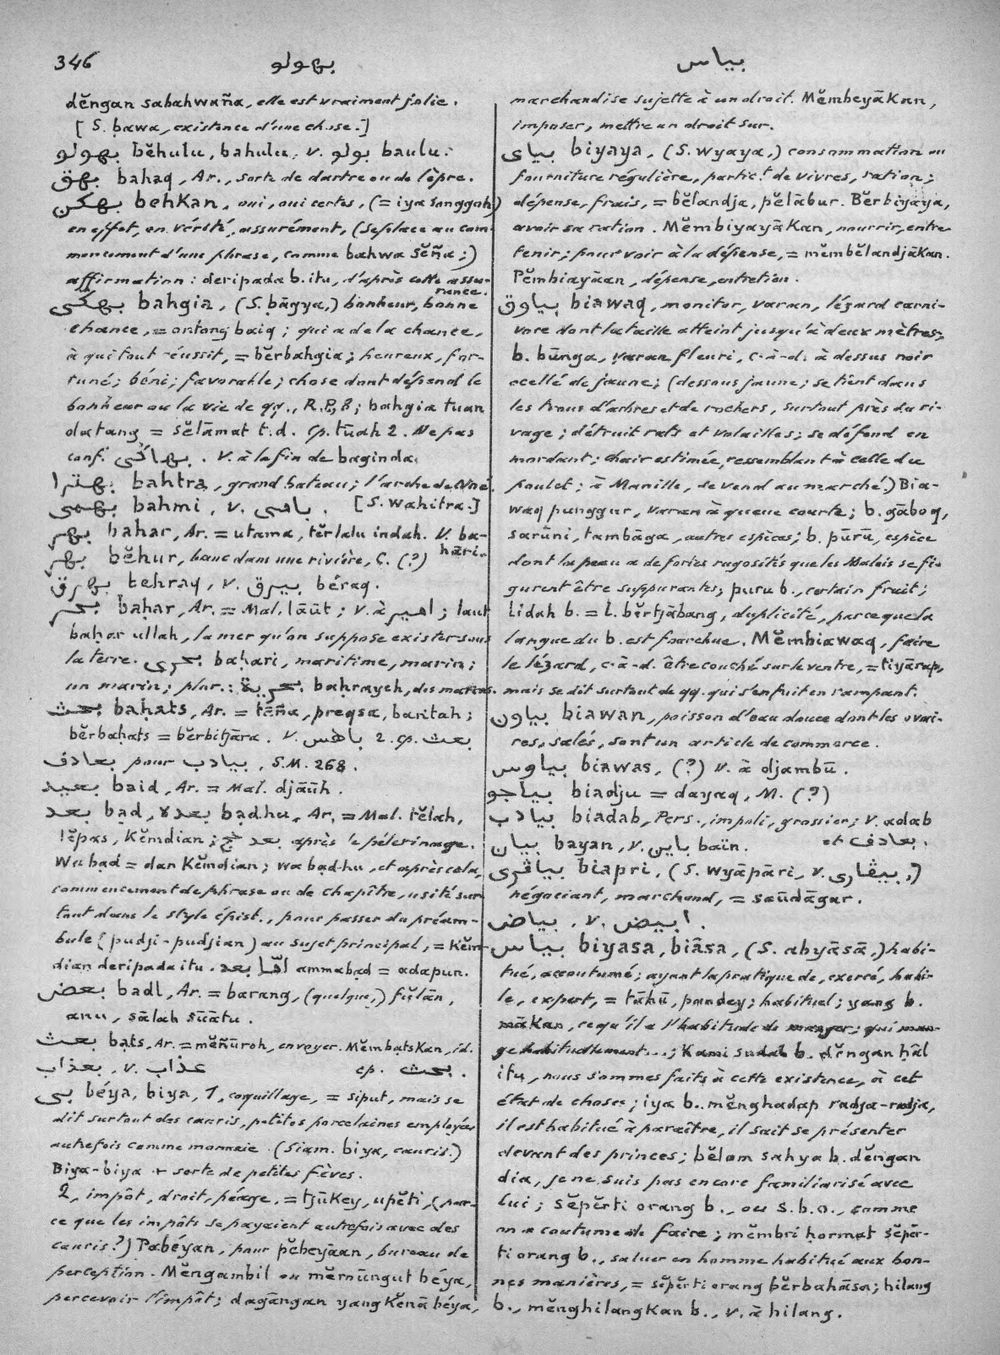 346
بهولو
بياس
dĕngan sabahwaña, elle est vraiment jolie.
[S. bawa, existence d'une chose.]
بهولو bĕhulu, bahulu, v. بولو baulu.
بهق bahaq, Ar., sorte de dartre ou de lèpre.
بهكن behkan, oui, oui certes, (= iya sanggoh)
en effet, en vérité, assurément, (se place au com-
mencement d'une phrase, comme bahwa sĕña;)
affirmation: deripada b. itu, d'après cette assu-
rance.
بهݢي bahgia, (S. bāgya,) bonheur, bonne
chance, = ontong baiq; qui a de la chance,
à qui tout réussit, = bĕrbahgia; heureux, for-
tuné; béni; favorable; chose dont dépend le
bonheur ou la vie de qq., R.P.B; bahgia tuan
datang = sĕlāmat t.d. Cp. tūah 2. Ne pas
conf. بهاݢي. V. à la fin de baginda.
بهترا bahtra, grand bateau; l'arche de Noé.
بهمي bahmi, v. باهمي. [S. wahitra.]
بهر bahar, Ar. = utama, tĕrlalu indah. V. ba-
hāri.
بهر bĕhur, banc dans une rivière, C. (?)
بهرق behraq, v. بيرق béraq.
بحر baḥar, Ar. = Mal. lāūt; v. à اهير; laut
baḥar ullah, la mer qu'on suppose exister sous
la terre. بحري baḥari, maritime, marin;
un marin; plur.: بحرية baḥrayeh, des marins.
بحث baḥats, Ar. = tāña, preqsa, baritah;
bĕrbaḥats = bĕrbitjāra. V. باهس 2. cp. بعث
بعادف pour بيادب, S.M. 268.
بعيد baid, Ar. = Mal. djāūh.
بعد bad, بعده bad.hu, Ar. = Mal. tĕlah,
lĕpas, kĕmdian; بعد حج après le pélerinage.
Wa bad = dan kĕmdian; wa bad-hu, et après cela,
commencement de phrase ou de chapître, usité sur-
tout dans le style épist., pour passer du préam-
bule (pudji-pudjian) au sujet principal, = kĕm-
dian deripada itu. امّا بعد ammabad = adapun.
بعض badl, Ar. = barang, (quelque,) fulān,
anu, sālah sūātu.
بعث bats, Ar. = mĕñūroh, envoyer. Mĕmbatskan, id.
بعذاب, v. عذاب. cp. بحث.
بي béya, biya, 1, coquillage, = siput, mais se
dit surtout des cauris, petites porcelaines employées
autrefois comme monnaie. (Siam. biya, cauris.)
Biya-biya + sorte de petites fèves.
2, impôt, droit, péage, = tjūkey, upĕti, (par-
ce que les impôts se payaient autrefois avec des
cauris?) Pabéyan, pour pĕbeyāan, bureau de
perception. Mĕngambil ou mĕmūngut béya,
percevoir l'impôt; dagāngan yang kĕnā béya,
marchandise sujette à un droit. Mĕmbeyākan,
imposer, mettre un droit sur.
بياي biyaya, (S. wyaya,) consommation ou
fourniture régulière, partic.t de vivres, ration;
dépense, frais, = bĕlandja, pĕlābur. Bĕrbiyaya,
avoir sa ration. Mĕmbiyayākan, nourrir, entre-
tenir; pourvoir à la dépense, = mĕmbĕlandjākan.
Pĕmbiayāan, dépense, entretien.
بياوق biawaq, monitor, varan, lézard carni-
vore dont la taille atteint jusqu'à deux mètres;
b. būnga, varan fleuri, c.-à-d. à dessus noir
ocellé de jaune; (dessous jaune; se tient dans
les trous d'arbres et de rochers, surtout près du ri-
vage; détruit rats et volailles; se défend en
mordant; chair estimée, ressemblant à celle du
poulet; à Manille, se vend au marché.) Bia-
waq punggur, varan à queue courte; b. gāboq,
sarūni, tambāga, autres espèces; b. pūrū, espèce
dont la peau a de fortes rugosités que les Malais se fi-
gurent être suppurantes; puru b., certain fruit;
lidah b. = l. bĕrtjābang, duplicité, parce que la
langue du b. est fourchue. Mĕmbiawaq, faire
le lézard, c.-à-d. être couché sur le ventre, = tiyārap,
mais se dit surtout de qq. qui s'enfuit en rampant.
بياون biawan, poisson d'eau douce dont les ovai-
res, salés, sont un article de commerce.
بياوس biawas, (?) v. à djambū.
بياجو biadju = dayaq, M. (?)
بيادب biadab, Pers., impoli, grossier; v. adab
et بعادف.
بيان bayan, v. باين baïn.
بياڤري biapri, (S. wyāpāri, v. بيڤاري,)
négociant, marchand, = saūdāgar.
بياض, v. ابيض.
بياس biyasa, biāsa, (S. abyāsā,) habi-
tué, accoutumé; ayant la pratique de, exercé, habi-
le, expert, = tāhū, pandey; habituel; yang b.
mākan, ce qu'il a l'habitude de manger; qui man-
ge habituellement...; kami sudah b. dĕngan ḥāl
itu, nous sommes faits à cette existence, à cet
état de choses; iya b. mĕnghadap radja-radja,
il est habitué à paraître, il sait se présenter
devant des princes; bĕlom sahya b. dĕngan
dia, je ne suis pas encore familiarisé avec
lui; sĕpĕrti orang b., ou s.b.o., comme
on a coutume de faire; mĕmbri ḥormat sĕpĕr-
ti orang b., saluer en homme habitué aux bon-
nes manières, = sĕpĕrti orang bĕrbahāsa; hilang
b., mĕnghilangkan b., v. à hilang.